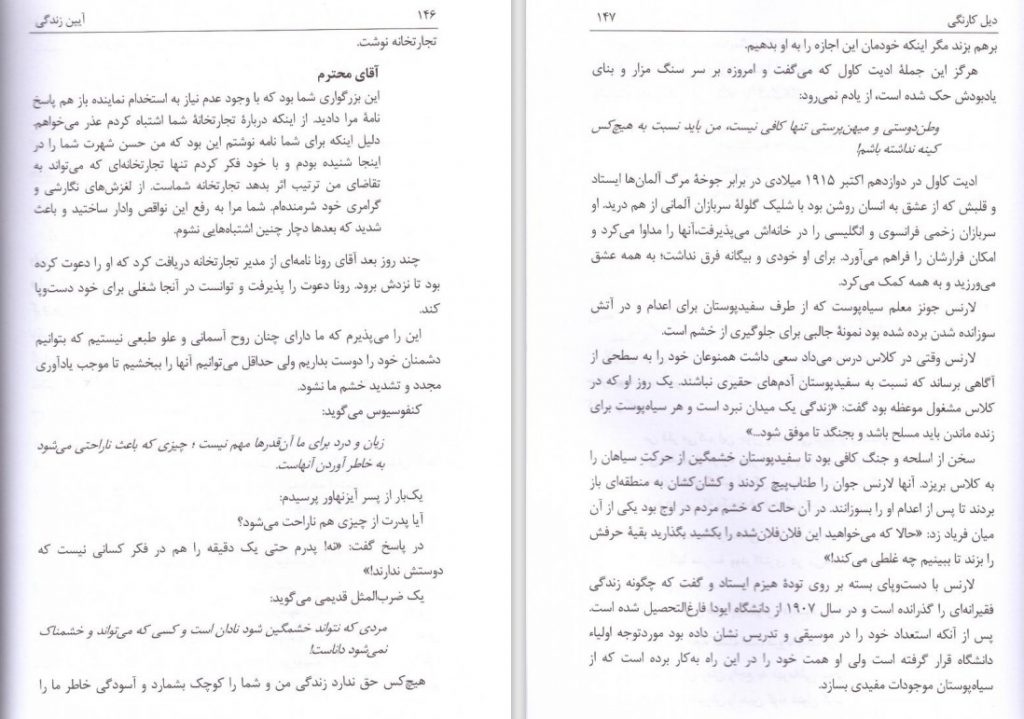 ۱۴۶ آیین زندگی
تجارتخانه نوشت.
آقای محترم
این بزرگواری شما بود که با وجود عدم نیاز به استخدام نماینده باز هم پاسخ
نامهٔ مرا دادید. از اینکه دربارهٔ تجارتخانهٔ شما اشتباه کردم عذر می‌خواهم.
دلیل اینکه برای شما نامه نوشتم این بود که من حسن شهرت شما را در
اینجا شنیده بودم و با خود فکر کردم تنها تجارتخانه‌ای که می‌تواند به
تقاضای من ترتیب اثر بدهد تجارتخانه شماست. از لغزش‌های نگارشی و
گرامری خود شرمنده‌ام. شما مرا به رفع این نواقص وادار ساختید و باعث
شدید که بعدها دچار چنین اشتباه‌هایی نشوم.
چند روز بعد آقای رونا نامه‌ای از مدیر تجارتخانه دریافت کرد که او را دعوت کرده
بود تا نزدش برود. رونا دعوت را پذیرفت و توانست در آنجا شغلی برای خود دست‌وپا
کند.
این را می‌پذیرم که ما دارای چنان روح آسمانی و علو طبعی نیستیم که بتوانیم
دشمنان خود را دوست بداریم ولی حداقل می‌توانیم آنها را ببخشیم تا موجب یادآوری
مجدد و تشدید خشم ما نشود.
کنفوسیوس می‌گوید:
زیان و درد برای ما آن‌قدرها مهم نیست ؛ چیزی که باعث ناراحتی می‌شود
به خاطر آوردن آنهاست.
یک‌بار از پسر آیزنهاور پرسیدم:
آیا پدرت از چیزی هم ناراحت می‌شود؟
در پاسخ گفت: «نه! پدرم حتی یک دقیقه را هم در فکر کسانی نیست که
دوستش ندارند!»
یک ضرب‌المثل قدیمی می‌گوید:
مردی که نتواند خشمگین شود نادان است و کسی که می‌تواند و خشمناک
نمی‌شود داناست!
هیچ‌کس حق ندارد زندگی من و شما را کوچک بشمارد و آسودگی خاطر ما را
دیل کارنگی ۱۴۷
برهم بزند مگر اینکه خودمان این اجازه را به او بدهیم.
هرگز این جملهٔ ادیت کاول که می‌گفت و امروزه بر سر سنگ مزار و بنای
یادبودش حک شده است، از یادم نمی‌رود:
وطن‌دوستی و میهن‌پرستی تنها کافی نیست، من باید نسبت به هیچ‌کس
کینه نداشته باشم!
ادیت کاول در دوازدهم اکتبر ۱۹۱۵ میلادی در برابر جوخهٔ مرگ آلمان‌ها ایستاد
و قلبش که از عشق به انسان روشن بود با شلیک گلولهٔ سربازان آلمانی از هم درید. او
سربازان زخمی فرانسوی و انگلیسی را در خانه‌اش می‌پذیرفت،آنها را مداوا می‌کرد و
امکان فرارشان را فراهم می‌آورد. برای او خودی و بیگانه فرق نداشت؛ به همه عشق
می‌ورزید و به همه کمک می‌کرد.
لارنس جونز معلم سیاه‌پوست که از طرف سفیدپوستان برای اعدام و در آتش
سوزانده شدن برده شده بود نمونهٔ جالبی برای جلوگیری از خشم است.
لارنس وقتی در کلاس درس می‌داد سعی داشت همنوعان خود را به سطحی از
آگاهی برساند که نسبت به سفیدپوستان آدم‌های حقیری نباشند. یک روز او که در
کلاس مشغول موعظه بود گفت: «زندگی یک میدان نبرد است و هر سیاه‌پوست برای
زنده ماندن باید مسلح باشد و بجنگد تا موفق شود...»
سخن از اسلحه و جنگ کافی بود تا سفیدپوستان خشمگین از حرکتِ سیاهان را
به کلاس بریزد. آنها لارنس جوان را طناب‌پیچ کردند و کشان‌کشان به منطقه‌ای باز
بردند تا پس از اعدام او را بسوزانند. در آن حالت که خشم مردم در اوج بود یکی از آن
میان فریاد زد: «حالا که می‌خواهید این فلان‌فلان‌شده را بکشید بگذارید بقیهٔ حرفش
را بزند تا ببینیم چه غلطی می‌کند!»
لارنس با دست‌وپای بسته بر روی تودهٔ هیزم ایستاد و گفت که چگونه زندگی
فقیرانه‌ای را گذرانده است و در سال ۱۹۰۷ از دانشگاه ایودا فارغ‌التحصیل شده است.
پس از آنکه استعداد خود را در موسیقی و تدریس نشان داده بود موردتوجه اولیاء
دانشگاه قرار گرفته است ولی او همت خود را در این راه به‌کار برده است که از
سیاه‌پوستان موجودات مفیدی بسازد.